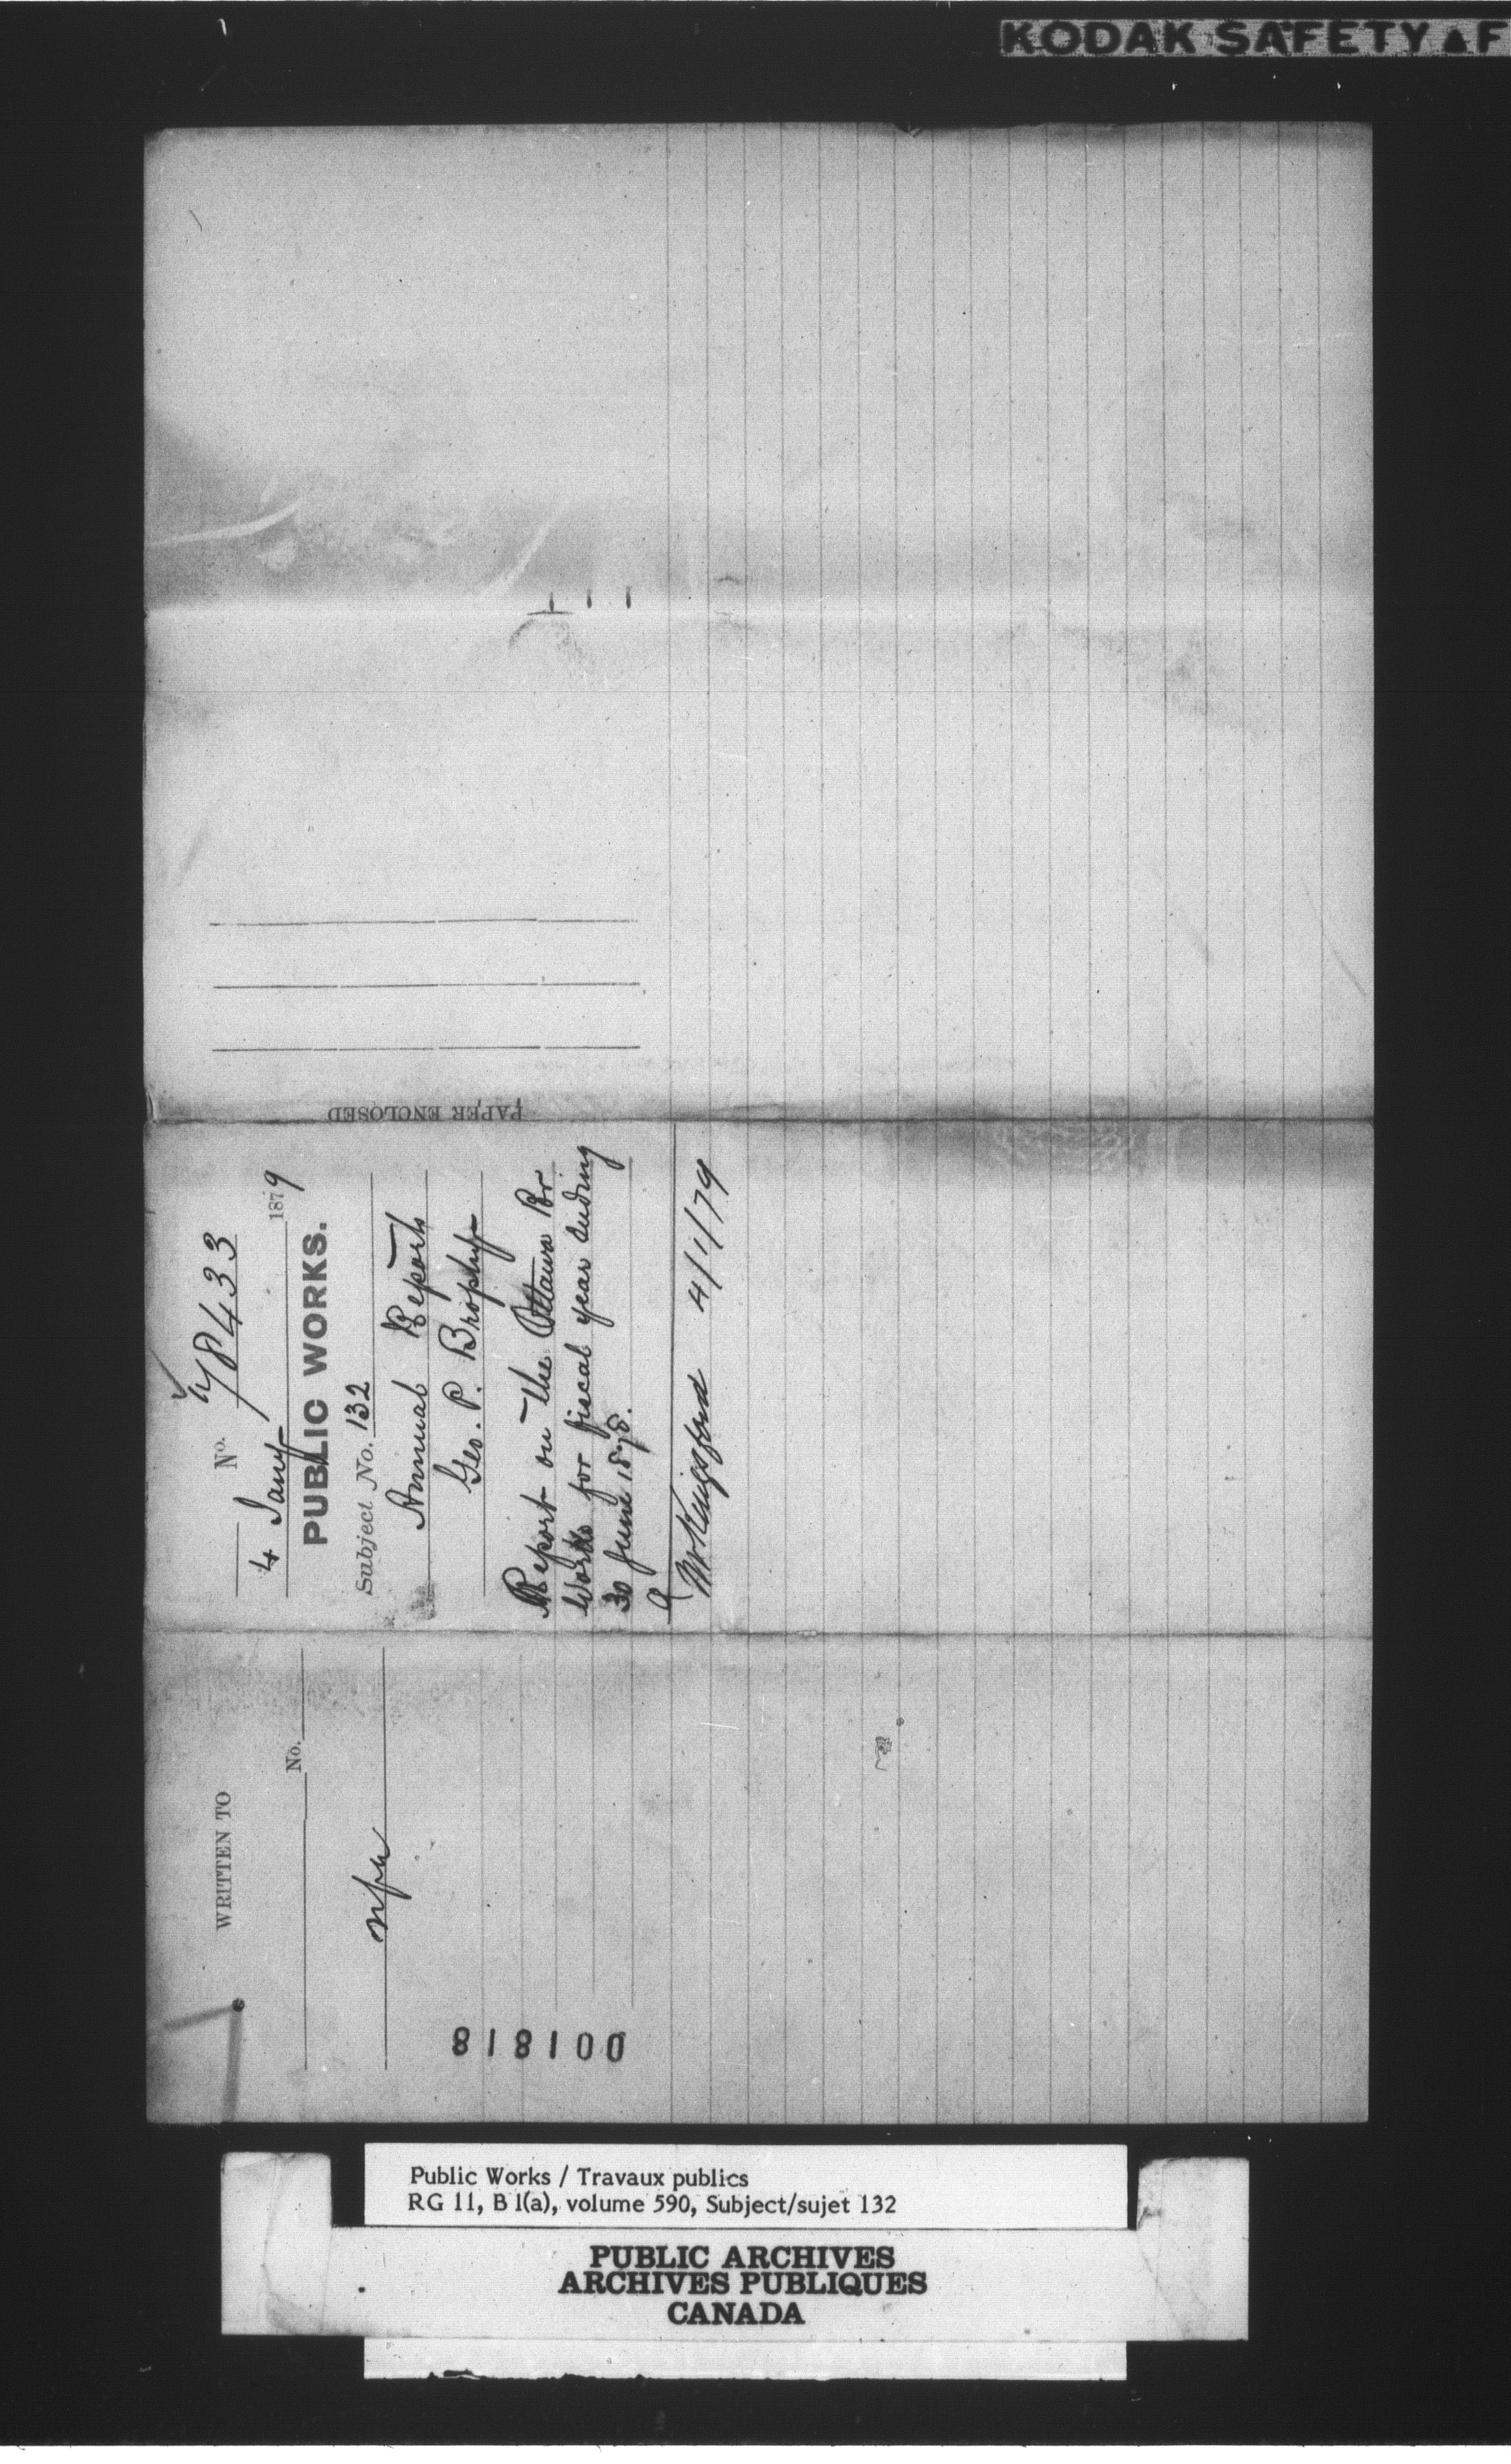 KODAK SAFETY ▲ F
PAPER ENCLOSED
No. 78433
4 Jany 1879
PUBLIC WORKS.
Subject No. 132
Annual Reports
Geo. P. Brophy
Report on the Ottawa Rr
Works for fiscal year ending
30 June 1878.
Kingsford 4/1/79
WRITTEN TO
No.
nfa
818100
Public Works / Travaux publics
RG 11, B 1(a), volume 590, Subject/sujet 132
PUBLIC ARCHIVES
ARCHIVES PUBLIQUES
CANADA